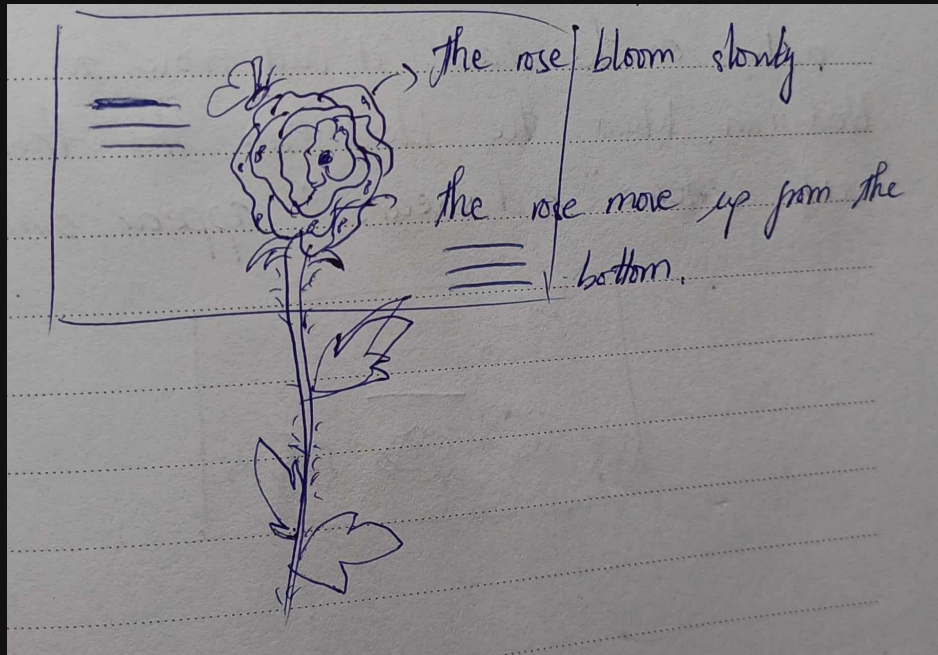 the rose bloom slowly.
the rose move up from the
bottom.